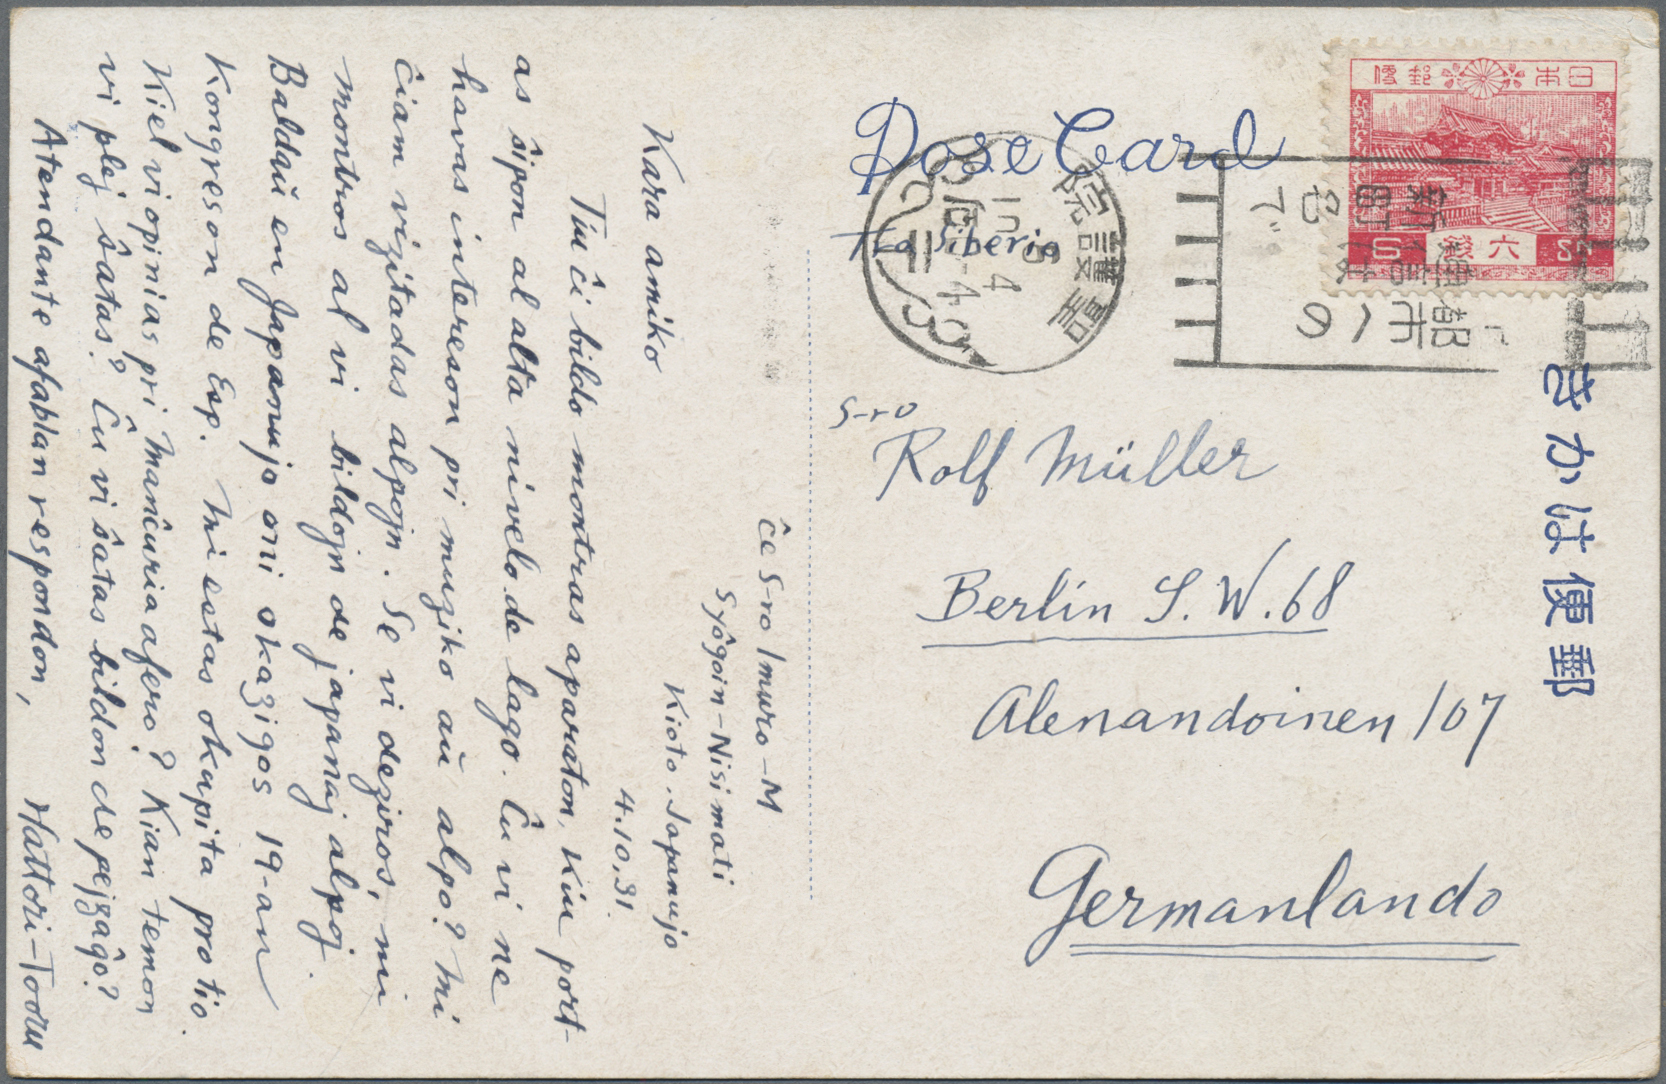 Post Card
Via Siberia
日本郵便
六錢
6
6
聖護院
6
10
4
きかは便郵
S-ro
Rolf Müller
Berlin S.W.68
Alexandrinen 107
Germanlando
ĉe S-ro Imuro-M
Syôgoin-Nisimati
Kioto. Japanujo
4.10.31.
Kara amiko
Tiu ĉi bildo montras aparaton, kiu port-
as ŝipon al alta nivelo de lago. Ĉu vi ne
havas intereson pri muziko aŭ alpo? Mi
ĉiam vizitadas alpojn. Se vi deziros, mi
montros al vi bildojn de japanaj alpoj.
Baldaŭ en Japanujo oni okazigos 19-an
Kongreson de Esp. Mi estas okupita pro tio.
Kiel vi opinias pri Manĉuria afero? Kian temon
vi plej ŝatas? Ĉu vi ŝatas bildon de pejzaĝo?
Atendante afablan respondon,
Hattori-Tooru